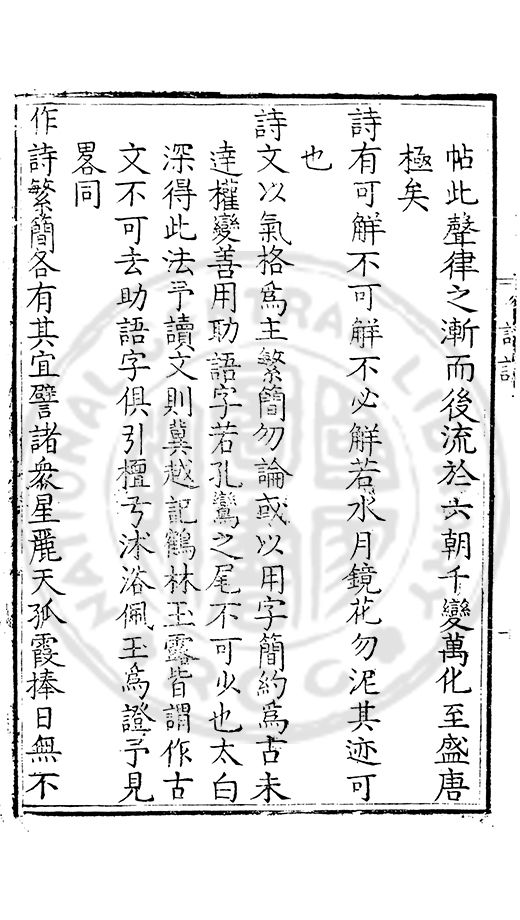 帖此聲律之漸而後流於六朝千變萬化至盛唐
極矣
詩有可解不可解不必解若水月鏡花勿泥其迹可
也
詩文以氣格爲主繁簡勿論或以用字簡約爲古未
達權變善用助語字若孔鸞之尾不可少也太白
深得此法予讀文則冀越記鶴林玉露皆謂作古
文不可去助語字俱引檀弓沐浴佩玉爲證予見
畧同
作詩繁簡各有其宜譬諸衆星麗天孤霞捧日無不